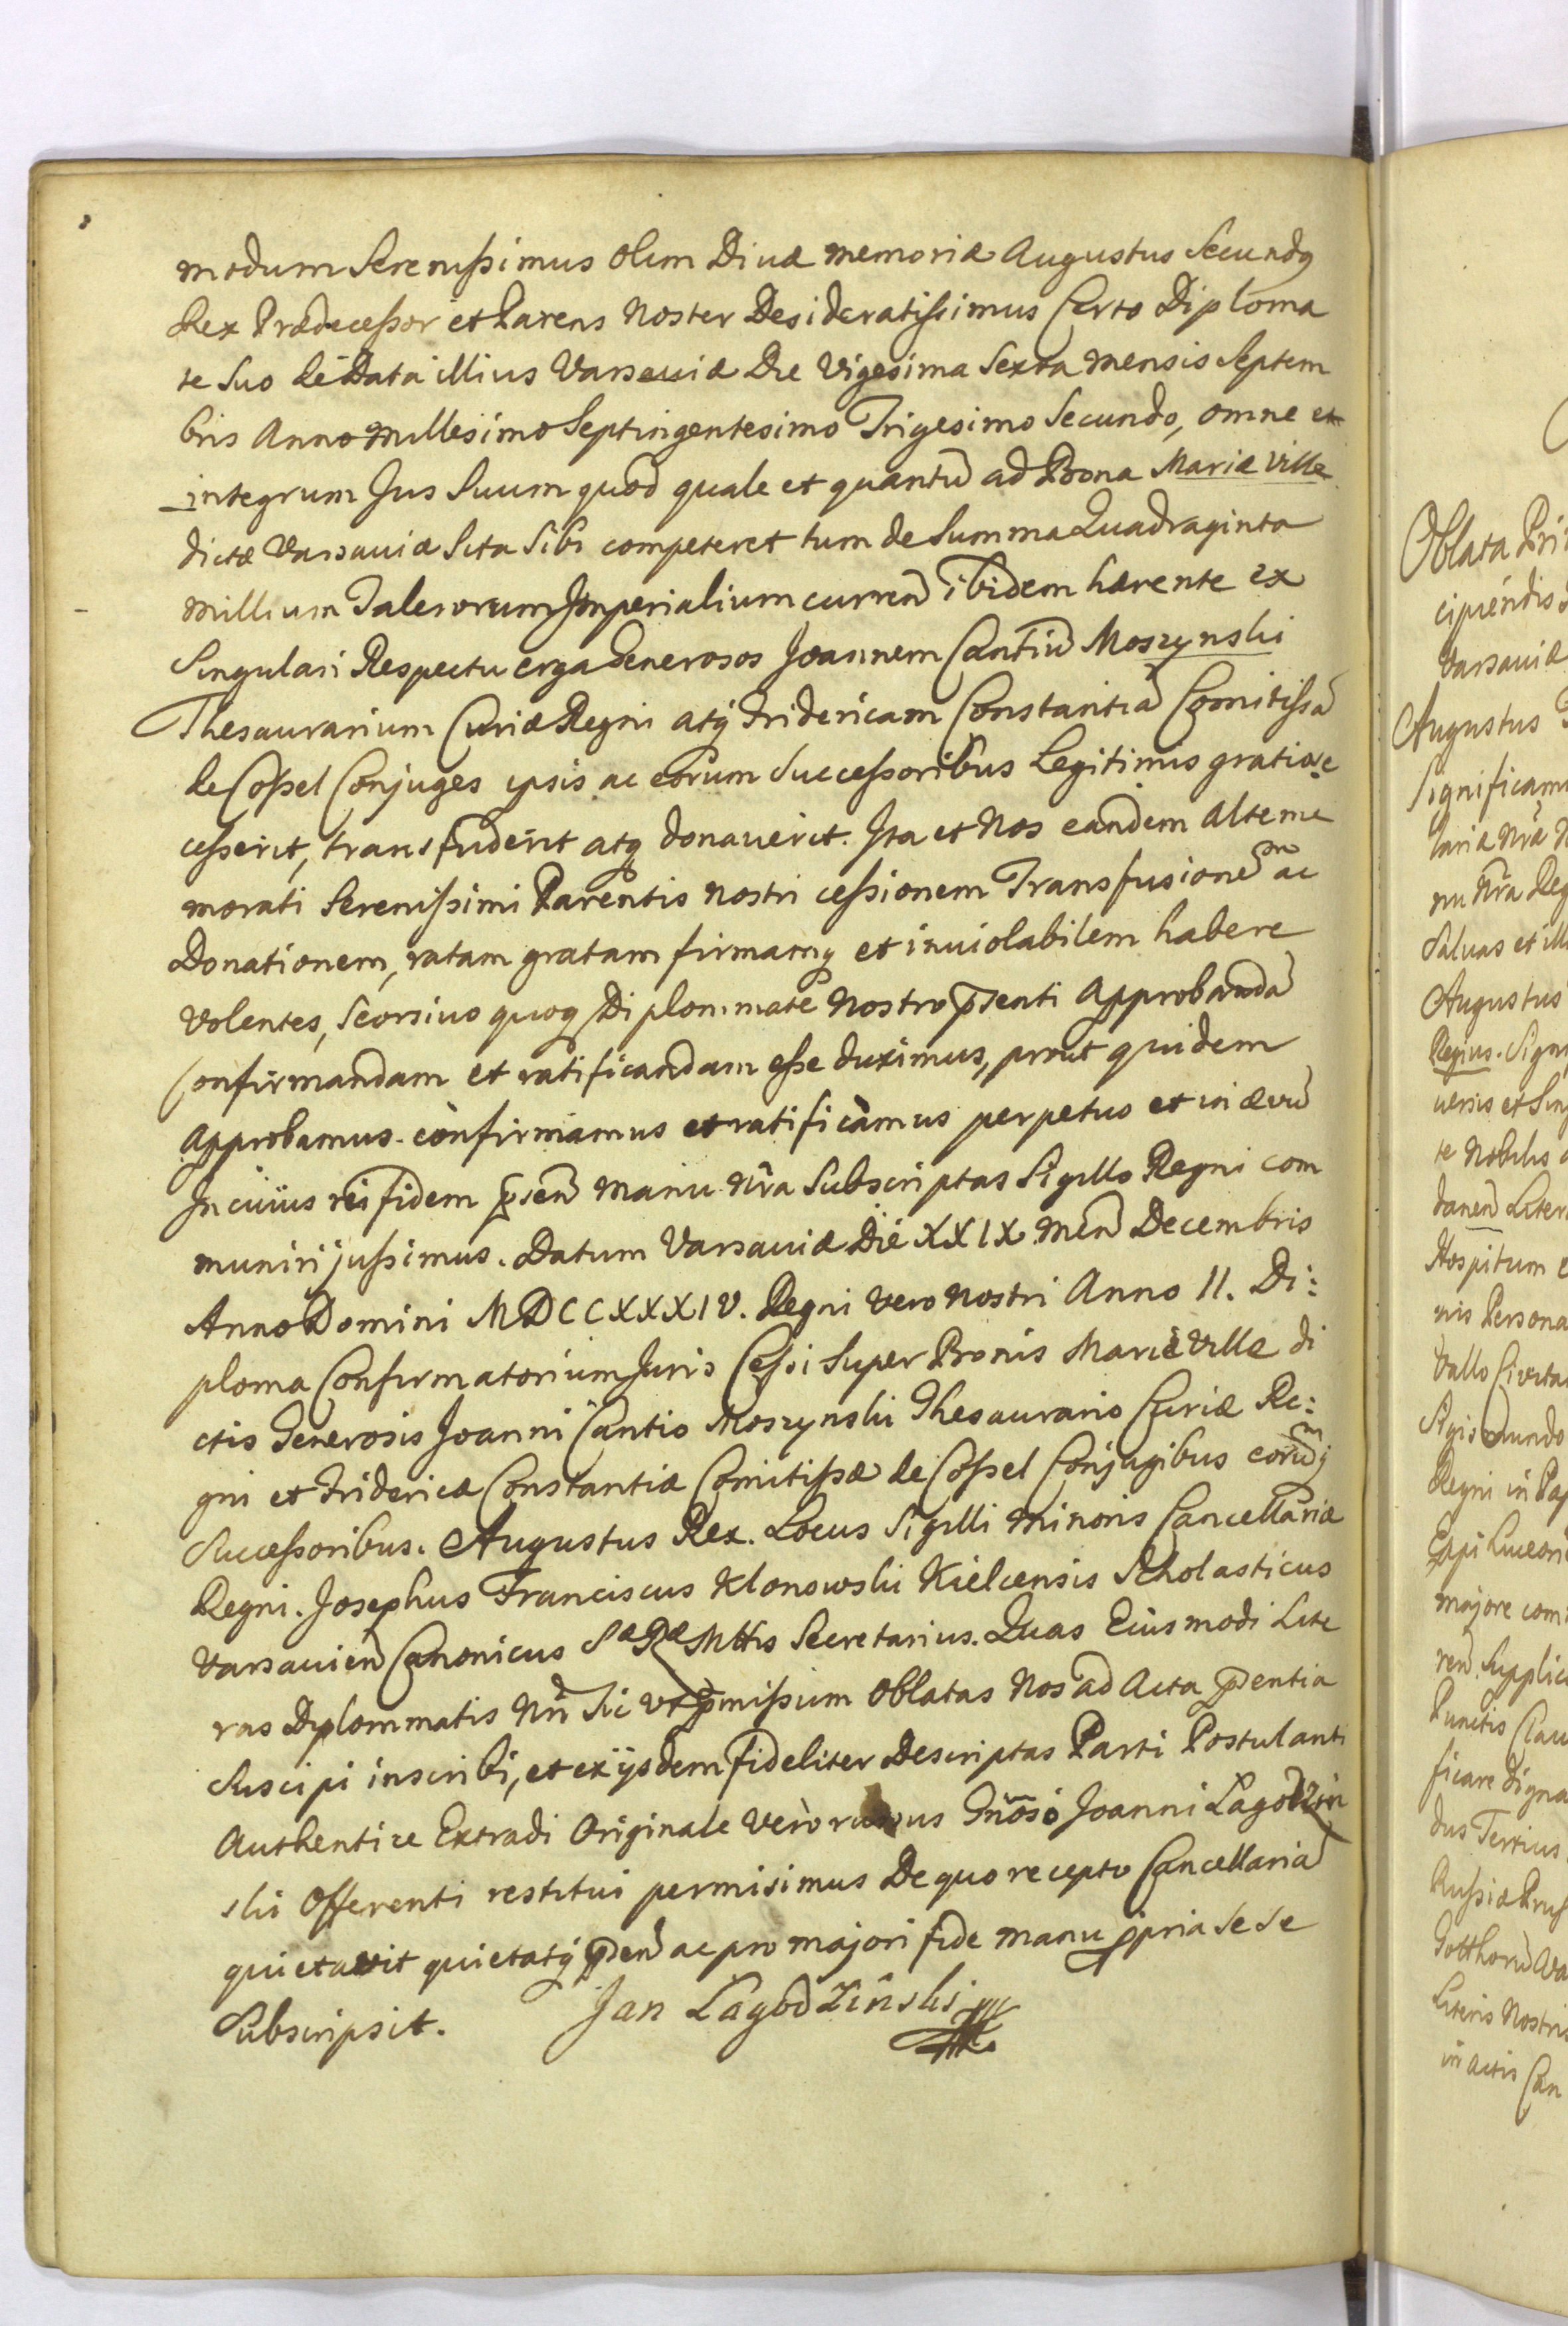 modum Serenissimus olim Divæ memoriæ Augustus Secundq
Rex Prædecessor et Parens Noster Desideratissimus Certo Diploma
te Suo de Data illius Varsaviæ Die Vigesima Sexta mensis Septem
bris Anno Millesimo Septingentesimo Trigesimo Secundo, omne et
integrum Jus Suum quod quale et quantũ ad Bona Mariæ Ville
dictæ Varsaviæ Sita Sibi competeret tum de Summa Quadraginta
Millium Talerorum Imperialium curreñ ibidem hærente ex
Singulari Respectu erga Generosos Joannem Cantiũ Moszynski
Thesaurarium Curiæ Regni atq Fridericam Constantiã Comitissã
de Cossel Conjuges ipsis ac eorum Successoribus Legitimis gratiose
cesserit, transfuderit atq donaverit. Ita et Nos eandem alte me
morati Serenissimi Parentis Nostri cessionem Transfusionẽm ac
Donationem, ratam gratam firmamq et inviolabilem habere
Volentes, Seorsivo quoq Diplommate Nostro p̃senti Approbandã
Confirmandam et ratificandam esse duximus, prout quidem
Approbamus confirmamus et ratificamus perpetuo et in ævũ
In cuius rei fidem p̃señ manu Nr̃a Subscriptas Sigillo Regni com
muniri jussimus. Datum Varsaviæ Die XXIX Meñ Decembris
Anno Domini MDCCXXXIV. Regni Vero Nostri Anno II. Di:
ploma Confirmatorium Juris Cessi Super Bonis Mariæ Ville di
ctis Generosis Joanni Cantio Moszynski Thesaurario Curiæ Re:
gni et Fridericæ Constantiæ Comitissæ de Cossel Conjugibus eorũmq
Successoribus. Augustus Rex. Locus Sigilli Minoris Cancellariæ
Regni. Josephus Franciscus Klonowski Kielcensis Scholasticus
Varsavieñ Canonicus Sæ Ræ Mttis Secretarius. Quas Eiusmodi Lite
ras Diplommatis Nr̃i Sic ut p̃missum Oblatas Nos ad Acta p̃sentia
Suscipi inscribi, et ex iisdem fideliter Descriptas Parti Postulanti
Authentice Extradi Originale Vero rursus Gnoso Joanni Lagodzin
ski Offerenti restitui permisimus De quo recepto Cancellariã
quietavit quietatq p̃señ ac pro majori fide manu ppria Se Se
Subscripsit. Jan Lagodziński

Oblata Pri
cipiendis
Varsaviæ
Augustus
Significam
lariæ Nrã
nu Nr̃a Reg
Salvas et ill
Augustus
Regius. Sign
versis et Sin
te Nobilis
daneñ Liter
Hospitum
nis Persona
Vallo Civita
Sigismundo
Regni in
Eppi Luceori
majore com
reñ. Supplic
Punctis Clau
ficare digna
dus Tertius
Russiæ Prus
Gotthorũ
Literis Nostris
in actis Can